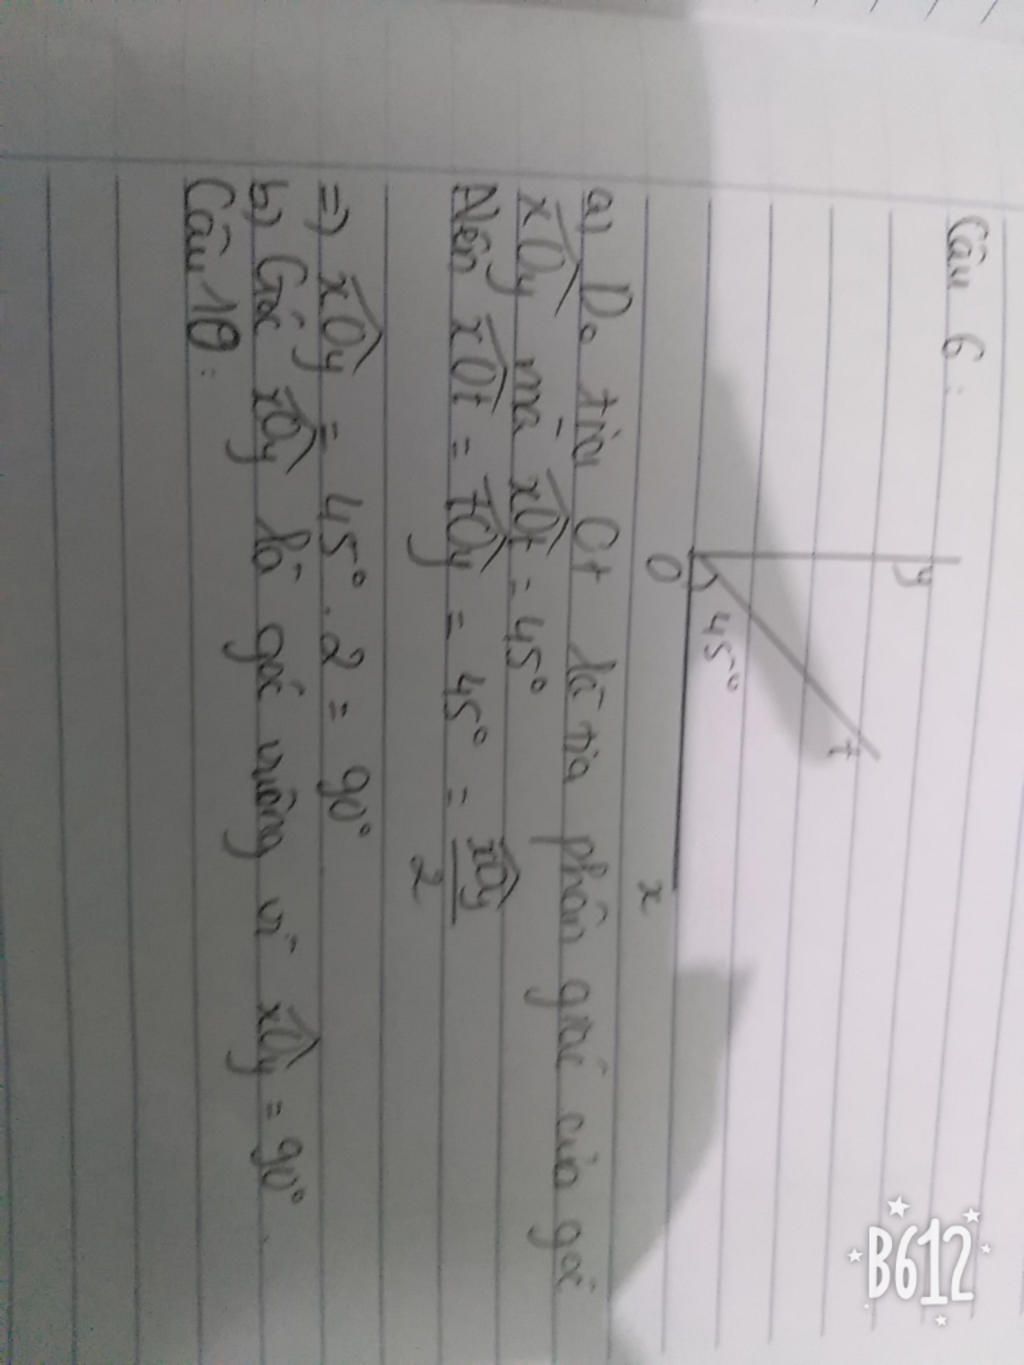 Câu 6:
y
t
45°
O
x
a) Do tia Ot là tia phân giác của góc
xOy mà xOt = 45°
Nên xOt = tOy = 45° = xOy/2
=> xOy = 45°.2 = 90°
b) Góc xOy là góc vuông vì xOy = 90°.
Câu 10:
B612